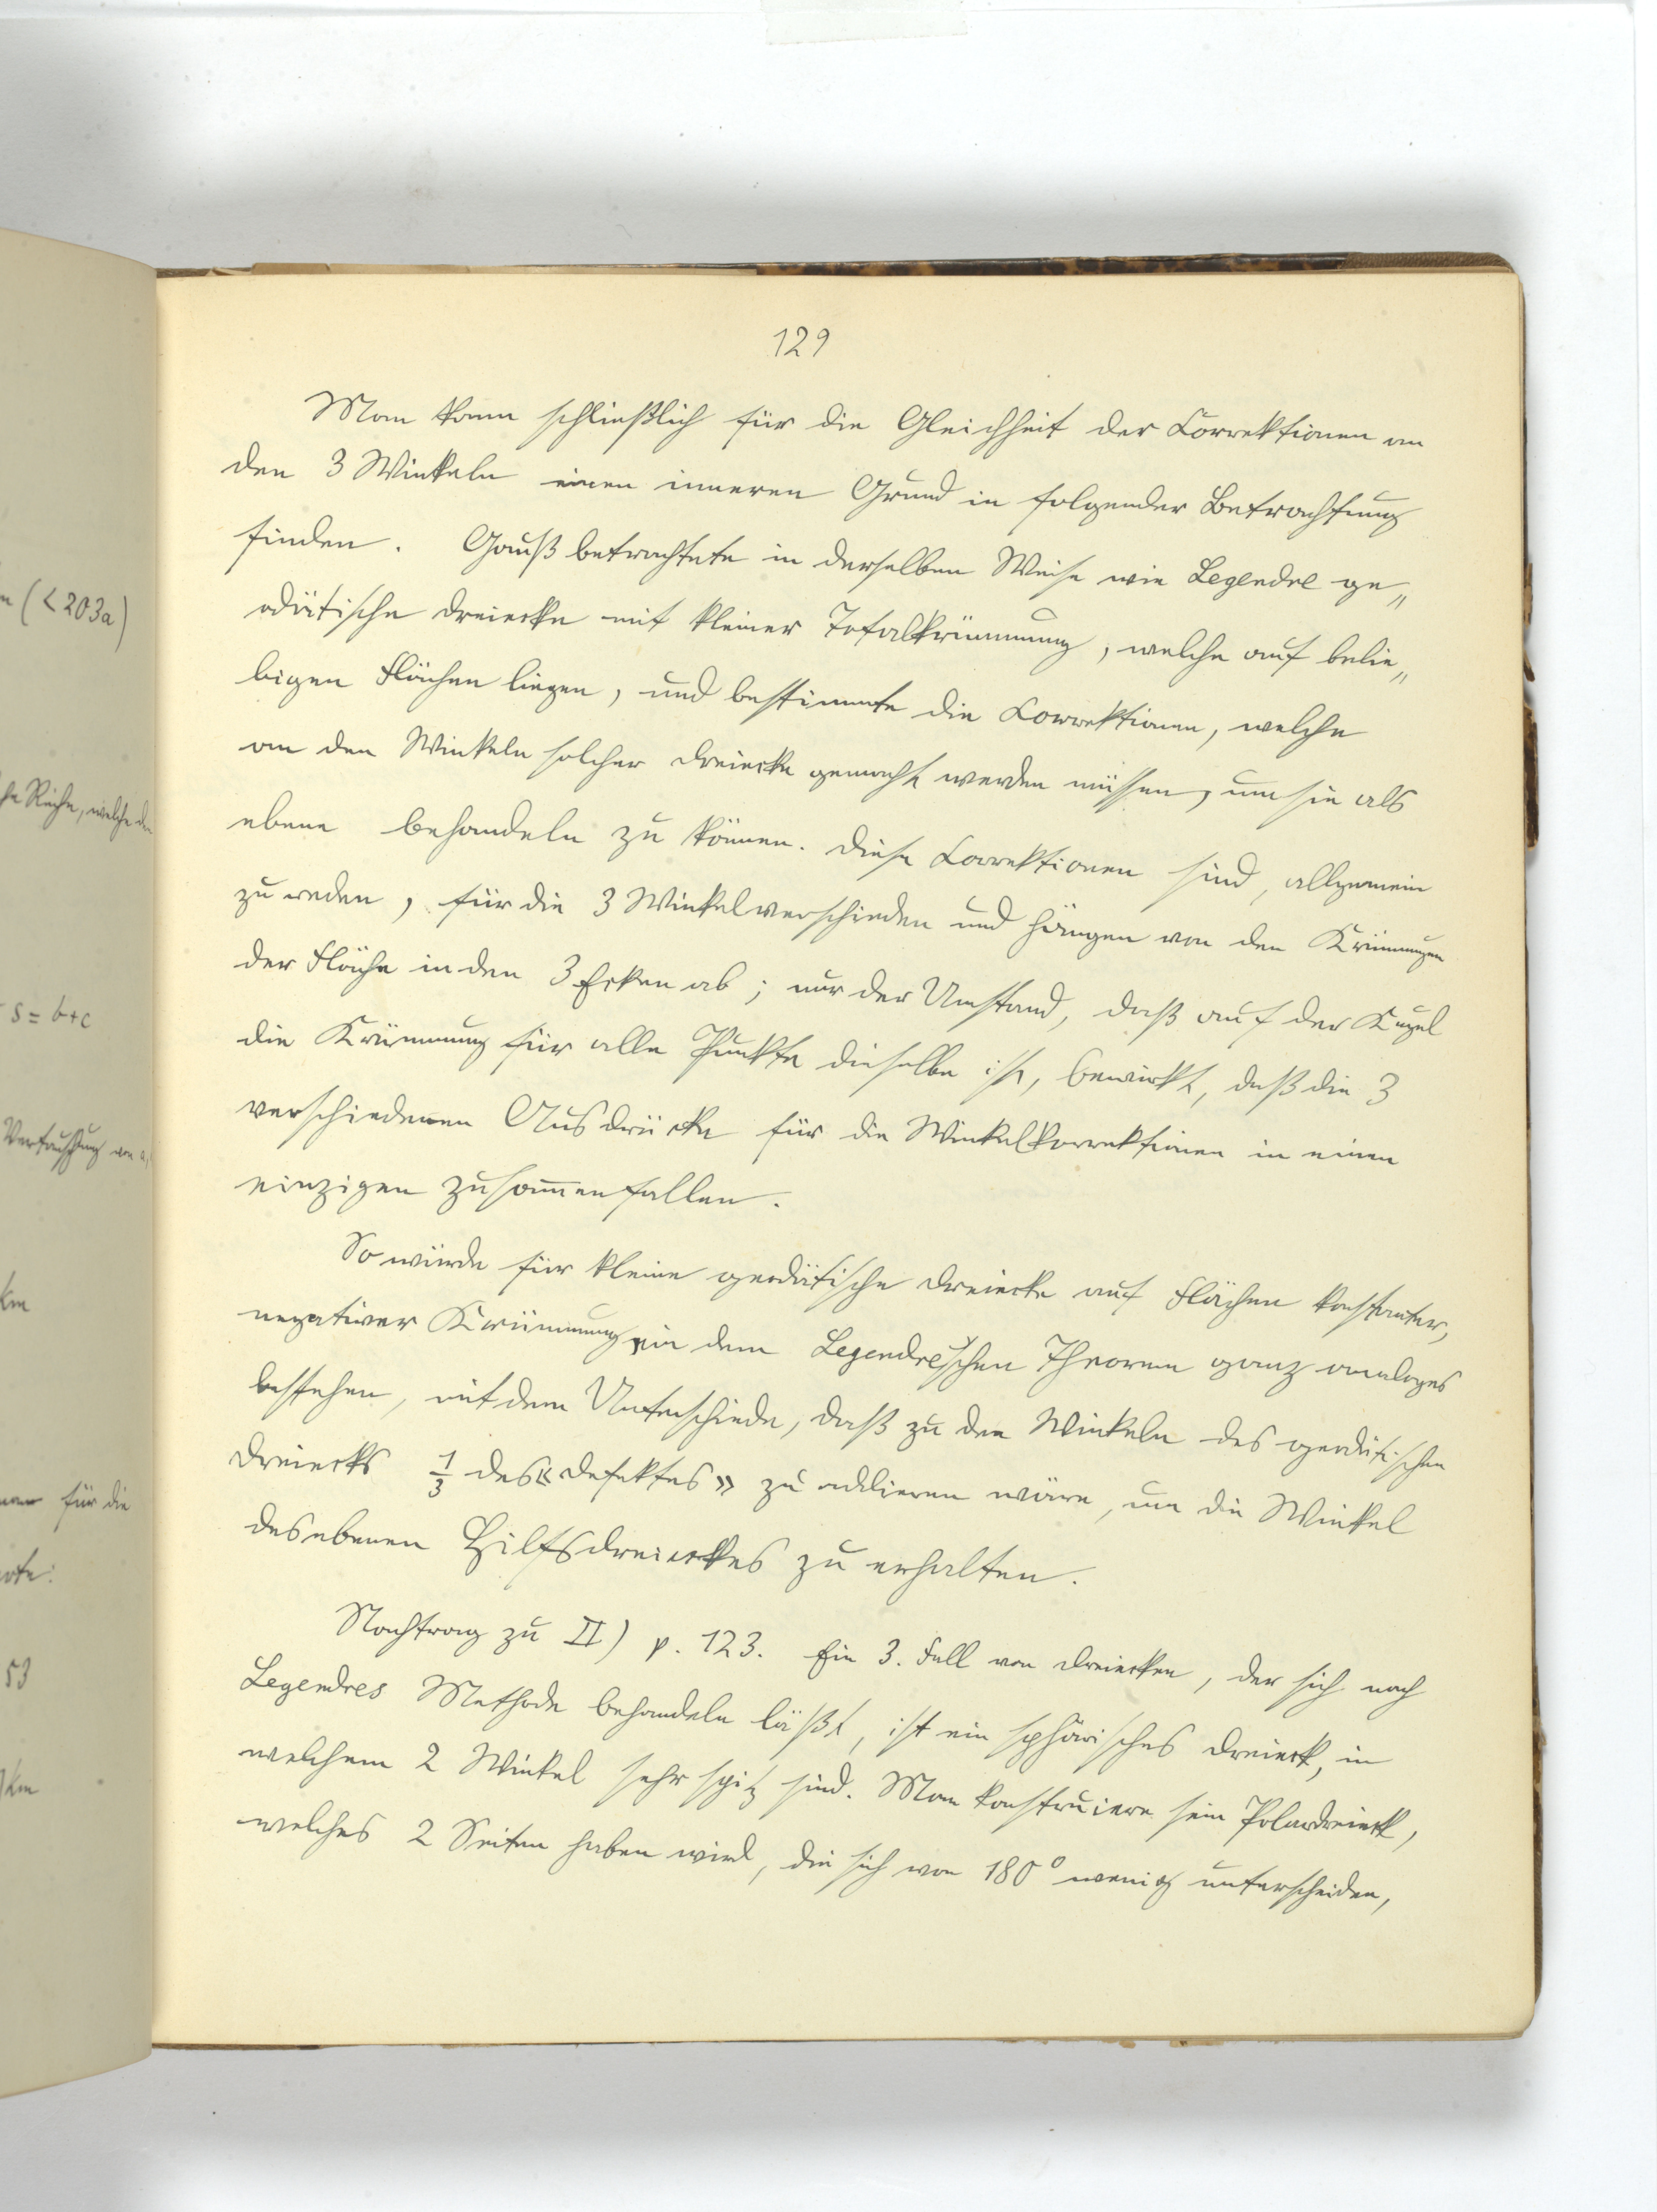 129
Man kann schließlich für die Gleichheit der Correktionen an
den 3 Winkeln einen inneren Grund in folgender Betrachtung
finden. Gauß betrachtete in derselben Weise wie Legendre ge„
odätische Dreiecke mit kleiner Totalkrümmung, welche auf belie„
bigen Flächen liegen, und bestimmte die Correktionen, welche
an den Winkeln solcher Dreiecke gemacht werden müssen, um sie als
ebene behandeln zu können. Diese Correktionen sind, allgemein
zu reden, für die 3 Winkel verschieden und hängen von den Krümmungen
der Fläche in den 3 Ecken ab; nur der Umstand, daß auf der Kugel
die Krümmung für alle Punkte dieselbe ist, bewirkt, daß die 3
verschiedenen Ausdrücke für die Winkelkorrektionen in einen
einzigen zusammenfallen.
So würde für kleine geodätische Dreiecke auf Flächen konstanter,
negativer Krümmung ein dem Legendre'schen Theorem ganz analoges
bestehen, mit dem Unterschiede, daß zu den Winkeln des geodätischen
Dreiecks 1/3 des «Defektes» zu addieren wäre, um die Winkel
des ebenen Hilfsdreieckes zu erhalten.
Nachtrag zu II) p. 123. Ein 3. Fall von Dreiecken, der sich nach
Legendres Methode behandeln läßt, ist ein sphärisches Dreieck, in
welchem 2 Winkel sehr spitz sind. Man konstruiere sein Polardreieck,
welches 2 Seiten haben wird, die sich von 180° wenig unterscheiden,
(<203a)
Reihe, welche
s = b+c
Vertauschung von a,
km
für die
53
km